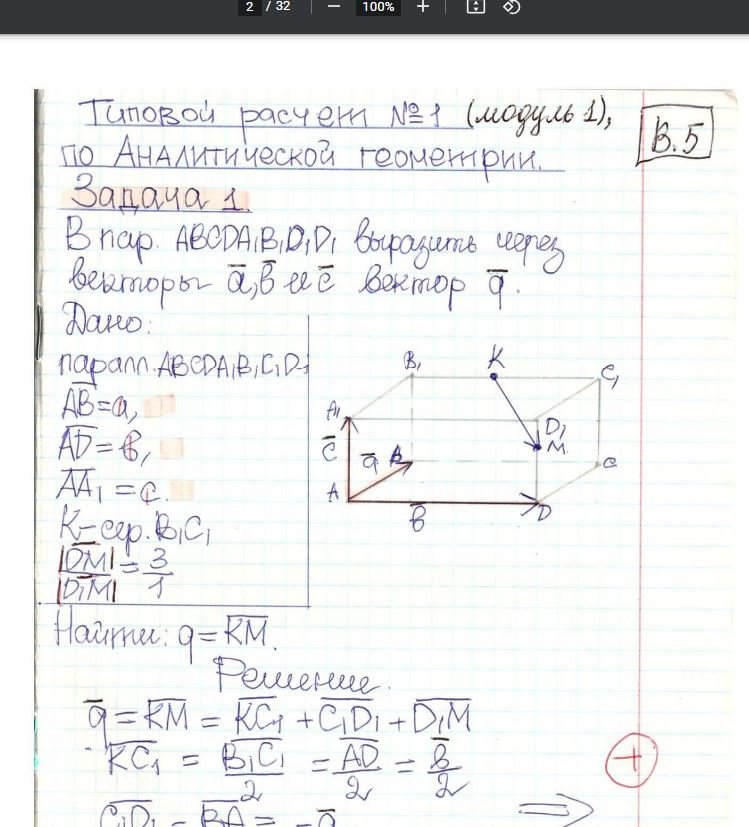 2 / 32 — 100% +
Типовой расчет №1 (модуль 1),
по Аналитической геометрии.
В.5
Задача 1.
В пар. ABCDA₁B₁D₁D₁ выразить через
векторы a̅, b̅ и c̅ вектор q̅.
Дано:
паралл. ABCDA₁B₁C₁D₁
A̅B̅ = a,
A̅D̅ = b,
A̅A̅₁ = c.
K – сер. B₁C₁
|D̅M̅| / |D̅₁M̅| = 3/1
B₁ K C₁
A₁ D₁
c̅ a̅ B M C
A b̅ D
Найти: q = K̅M̅.
Решение.
q̅ = K̅M̅ = K̅C̅₁ + C̅₁D̅₁ + D̅₁M̅
K̅C̅₁ = B̅₁C̅₁/2 = A̅D̅/2 = b̅/2
+
C̅₁D̅₁ = B̅A̅ = -a̅ ⇒